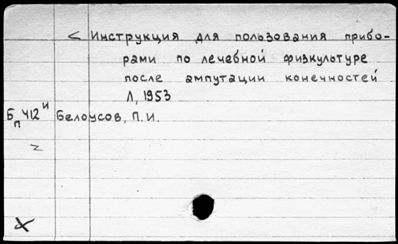 < Инструкция для пользования прибо-
рами по лечебной физкультуре
после ампутации конечностей
Л, 1953
Бп 412 и Белоусов, П. И.